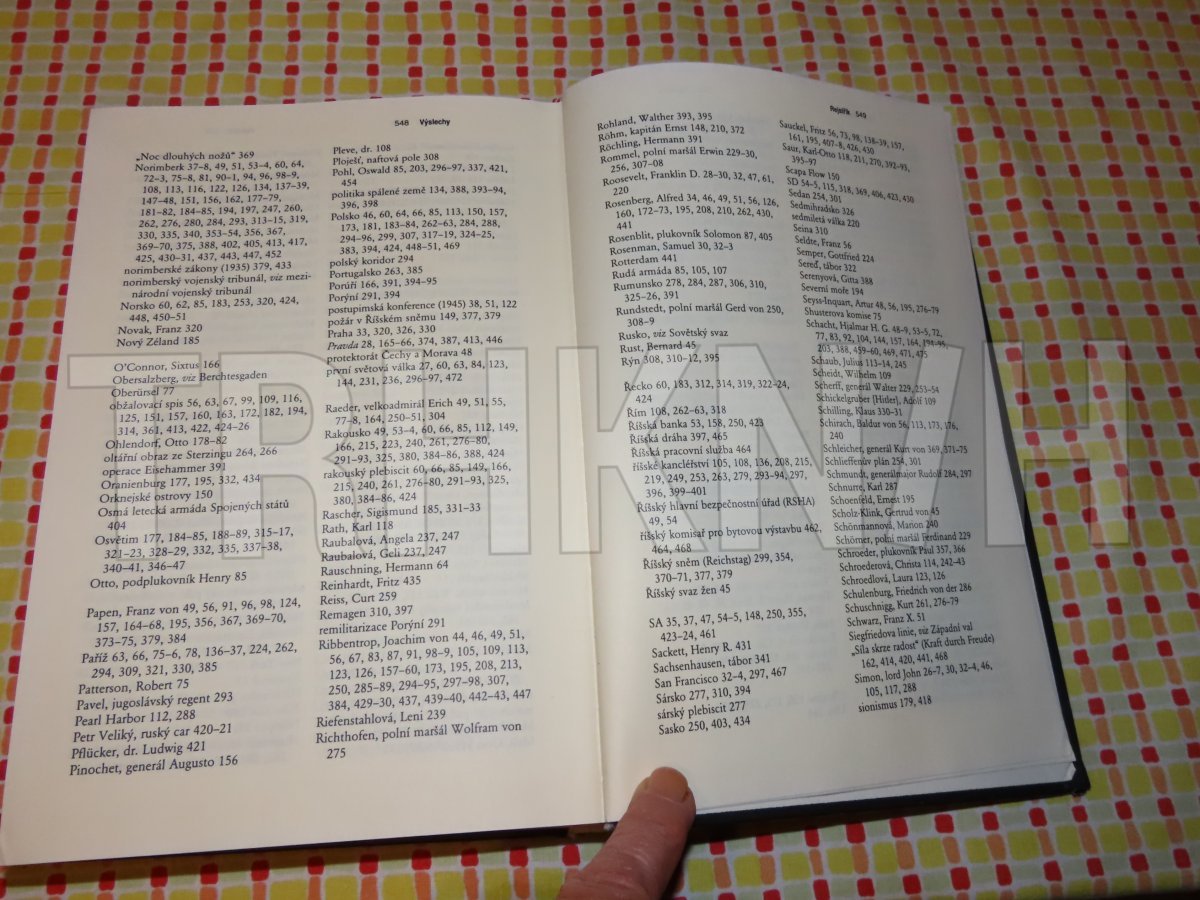 548 Výslechy
„Noc dlouhých nožů“ 369
Norimberk 37–8, 49, 51, 53–4, 60, 64,
72–3, 75–8, 81, 90–1, 94, 96, 98–9,
108, 113, 116, 122, 126, 134, 137–39,
147–48, 151, 156, 162, 177–79,
181–82, 184–85, 194, 197, 247, 260,
262, 276, 280, 284, 293, 313–15, 319,
330, 335, 340, 353–54, 356, 367,
369–70, 375, 388, 402, 405, 413, 417,
425, 430–31, 437, 443, 447, 452
norimberské zákony (1935) 379, 433
norimberský vojenský tribunál, viz mezi-
národní vojenský tribunál
Norsko 60, 62, 85, 183, 253, 320, 424,
448, 450–51
Novak, Franz 320
Nový Zéland 185
O'Connor, Sixtus 166
Obersalzberg, viz Berchtesgaden
Oberürsel 77
obžalovací spis 56, 63, 67, 99, 109, 116,
125, 151, 157, 160, 163, 172, 182, 194,
314, 361, 413, 422, 424–26
Ohlendorf, Otto 178–82
oltářní obraz ze Sterzingu 264, 266
operace Eisehammer 391
Oranienburg 177, 195, 332, 434
Orknejské ostrovy 150
Osmá letecká armáda Spojených států
404
Osvětim 177, 184–85, 188–89, 315–17,
321–23, 328–29, 332, 335, 337–38,
340–41, 346–47
Otto, podplukovník Henry 85
Papen, Franz von 49, 56, 91, 96, 98, 124,
157, 164–68, 195, 356, 367, 369–70,
373–75, 379, 384
Paříž 63, 66, 75–6, 78, 136–37, 224, 262,
294, 309, 321, 330, 385
Patterson, Robert 75
Pavel, jugoslávský regent 293
Pearl Harbor 112, 288
Petr Veliký, ruský car 420–21
Pflücker, dr. Ludwig 421
Pinochet, generál Augusto 156
Pleve, dr. 108
Ploješť, naftová pole 308
Pohl, Oswald 85, 203, 296–97, 337, 421,
454
politika spálené země 134, 388, 393–94,
396, 398
Polsko 46, 60, 64, 66, 85, 113, 150, 157,
173, 181, 183–84, 262–63, 284, 288,
294–96, 299, 307, 317–19, 324–25,
383, 394, 424, 448–51, 469
polský koridor 294
Portugalsko 263, 385
Porúří 166, 391, 394–95
Porýní 291, 394
postupimská konference (1945) 38, 51, 122
požár v Říšském sněmu 149, 377, 379
Praha 33, 320, 326, 330
Pravda 28, 165–66, 374, 387, 413, 446
protektorát Čechy a Morava 48
první světová válka 27, 60, 63, 84, 123,
144, 231, 236, 296–97, 472
Raeder, velkoadmirál Erich 49, 51, 55,
77–8, 164, 250–51, 304
Rakousko 49, 53–4, 60, 66, 85, 112, 149,
166, 215, 223, 240, 261, 276–80,
291–93, 325, 380, 384–86, 388, 424
rakouský plebiscit 60, 66, 85, 149, 166,
215, 240, 261, 276–80, 291–93, 325,
380, 384–86, 424
Rascher, Sigismund 185, 331–33
Rath, Karl 118
Raubalová, Angela 237, 247
Raubalová, Geli 237, 247
Rauschning, Hermann 64
Reinhardt, Fritz 435
Reiss, Curt 259
Remagen 310, 397
remilitarizace Porýní 291
Ribbentrop, Joachim von 44, 46, 49, 51,
56, 67, 83, 87, 91, 98–9, 105, 109, 113,
123, 126, 157–60, 173, 195, 208, 213,
250, 285–89, 294–95, 297–98, 307,
384, 429–30, 437, 439–40, 442–43, 447
Riefenstahlová, Leni 239
Richthofen, polní maršál Wolfram von
275
Rejstřík 549
Rohland, Walther 393, 395
Röhm, kapitán Ernst 148, 210, 372
Röchling, Hermann 391
Rommel, polní maršál Erwin 229–30,
256, 307–08
Roosevelt, Franklin D. 28–30, 32, 47, 61,
220
Rosenberg, Alfred 34, 46, 49, 51, 56, 126,
160, 172–73, 195, 208, 210, 262, 430,
441
Rosenblit, plukovník Solomon 87, 405
Rosenman, Samuel 30, 32–3
Rotterdam 441
Rudá armáda 85, 105, 107
Rumunsko 278, 284, 287, 306, 310,
325–26, 391
Rundstedt, polní maršál Gerd von 250,
308–9
Rusko, viz Sovětský svaz
Rust, Bernard 45
Rýn 308, 310–12, 395
Řecko 60, 183, 312, 314, 319, 322–24,
424
Řím 108, 262–63, 318
Říšská banka 53, 158, 250, 423
Říšská dráha 397, 465
Říšská pracovní služba 464
říšské kancléřství 105, 108, 136, 208, 215,
219, 249, 253, 263, 279, 293–94, 297,
396, 399–401
Říšský hlavní bezpečnostní úřad (RSHA)
49, 54
říšský komisař pro bytovou výstavbu 462,
464, 468
Říšský sněm (Reichstag) 299, 354,
370–71, 377, 379
Říšský svaz žen 45
SA 35, 37, 47, 54–5, 148, 250, 355,
423–24, 461
Sackett, Henry R. 431
Sachsenhausen, tábor 341
San Francisco 32–4, 297, 467
Sársko 277, 310, 394
sárský plebiscit 277
Sasko 250, 403, 434
Sauckel, Fritz 56, 73, 98, 138–39, 157,
161, 195, 407–8, 426, 430
Saur, Karl-Otto 118, 211, 270, 392–93,
395–97
Scapa Flow 150
SD 54–5, 115, 318, 369, 406, 423, 430
Sedan 254, 301
Sedmihradsko 326
sedmiletá válka 220
Seina 310
Seldte, Franz 56
Semper, Gottfried 224
Sereď, tábor 322
Serenyová, Gitta 388
Severní moře 194
Seyss-Inquart, Artur 48, 56, 195, 276–79
Shusterova komise 75
Schacht, Hjalmar H. G. 48–9, 53–5, 72,
77, 83, 92, 104, 144, 157, 164, 194–95,
203, 388, 459–60, 469, 471, 475
Schaub, Julius 113–14, 245
Scheidt, Wilhelm 109
Scherff, generál Walter 229, 253–54
Schickelgruber [Hitler], Adolf 109
Schilling, Klaus 330–31
Schirach, Baldur von 56, 113, 173, 176,
240
Schleicher, generál Kurt von 369, 371–75
Schlieffenův plán 254, 301
Schmundt, generálmajor Rudolf 284, 297
Schnurre, Karl 287
Schoenfeld, Ernest 195
Scholz-Klink, Gertrud von 45
Schönmannová, Marion 240
Schörner, polní maršál Ferdinand 229
Schroeder, plukovník Paul 357, 366
Schroederová, Christa 114, 242–43
Schroedlová, Laura 123, 126
Schulenburg, Friedrich von der 286
Schuschnigg, Kurt 261, 276–79
Schwarz, Franz X. 51
Siegfriedova linie, viz Západní val
„Síla skrze radost“ (Kraft durch Freude)
162, 414, 420, 441, 468
Simon, lord John 26–7, 30, 32–4, 46,
105, 117, 288
sionismus 179, 418
TRIKNVH